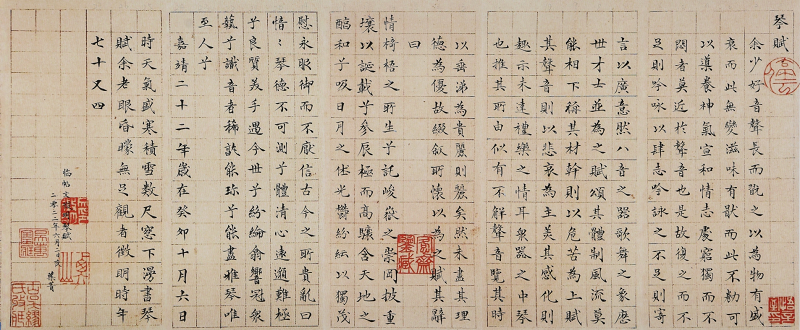 琴賦
余少好音聲長而翫之以為物有盛
衰而此無變滋味有猒而此不勌可
以導養神氣宣和情志處窮獨而不
悶者莫近於音聲也是故復之而不
足則吟詠以肆志吟詠之不足則寄
言以廣意然八音之器歌舞之象歷
世才士並為之賦頌其體制風流莫
能相下稱其材幹則以危苦為上賦
其聲音則以悲哀為主美其感化則
趣示未達禮樂之情耳眾器之中琴
也推其所由似有不解聲音覽其時
以垂涕為貴麗則麗矣然未盡其理
德為優故綴敘所懷以為之賦其辭
曰
情椅梧之所生兮託峻嶽之崇岡披重
壤以誕載兮參辰極而高驤含天地之
醕和兮吸日月之休光鬱紛紜以獨茂
慰永服御而不厭信古今之所貴亂曰
愔愔琴德不可測兮體清心遠邈難極
兮良質美手遇今世兮紛綸翕響冠眾
藝兮識音者稀孰能珍兮能盡雅琴唯
至人兮
嘉靖二十二年歲在癸卯十月六日
時天氣盛寒積雪數尺窓下漫書琴
賦余老眼昏曚無足觀者徵明時年
七十又四
臨帖文徵明琴賦
二零二二年六月